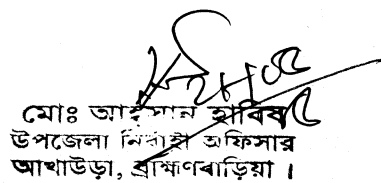 মোঃ আহসান হাবিব
উপজেলা নির্বাহী অফিসার
আখাউড়া, ব্রাহ্মণবাড়িয়া ।